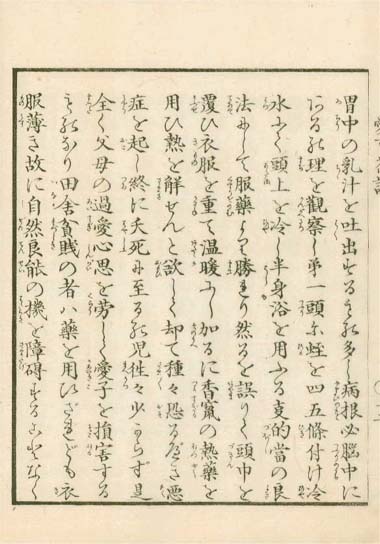 胃中の乳汁を吐出するもの多し病根必脳中に
あるの理を觀察し第一頭に蛭を四五條付け冷
水にて頭上を冷し半身浴を用ふる支的當の良
法にして服藥より勝れり然るを誤りて頭巾を
覆ひ衣服を重て温暖にし加るに香竄の熱藥を
用ひ熱を解せんと欲して却て種々恐るべき悪
症を起し終に夭死に至るの児徃々少からず是
全く父母の過愛心思を労して愛子を損害する
ものなり田舎貧賤の者ハ藥を用ひざれども衣
服薄き故に自然良能の機を障碍することなく